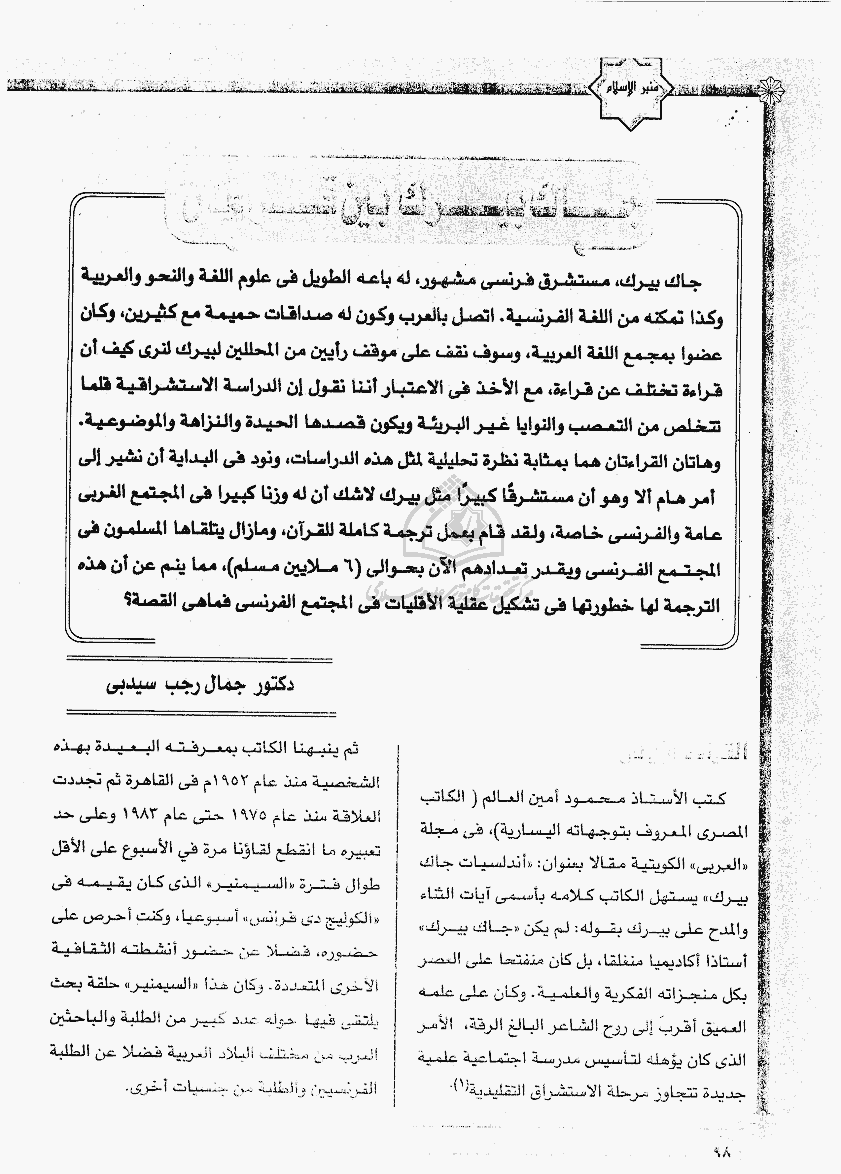 منبر الإسلام
جاك بيرك، مستشرق فرنسى مشهور، له باعه الطويل فى علوم اللغة والنحو والعربية
وكذا تمكنه من اللغة الفرنسية. اتصل بالعرب وكون له صداقات حميمة مع كثيرين، وكان
عضوا بمجمع اللغة العربية، وسوف نقف على موقف رأيين من المحللين لبيرك لنرى كيف أن
قراءة تختلف عن قراءة، مع الأخذ فى الاعتبار أننا نقول إن الدراسة الاستشراقية قلما
تتخلص من التعصب والنوايا غير البريئة ويكون قصدها الحيدة والنزاهة والموضوعية.
وهاتان القراءتان هما بمثابة نظرة تحليلية لمثل هذه الدراسات، ونود فى البداية أن نشير إلى
أمر هام ألا وهو أن مستشرقًا كبيرًا مثل بيرك لاشك أن له وزنا كبيرا فى المجتمع الغربى
عامة والفرنسى خاصة، ولقد قام بعمل ترجمة كاملة للقرآن، ومازال يتلقاها المسلمون فى
المجتمع الفرنسى ويقدر تعدادهم الآن بحوالى (٦ ملايين مسلم)، مما ينم عن أن هذه
الترجمة لها خطورتها فى تشكيل عقلية الأقليات فى المجتمع الفرنسى فماهى القصة؟
دكتور جمال رجب سيدبى
كتب الأستاذ محمود أمين العالم ( الكاتب
المصرى المعروف بتوجهاته اليسارية)، فى مجلة
«العربى» الكويتية مقالا بعنوان: «أندلسيات جاك
بيرك» يستهل الكاتب كلامه بأسمى آيات الثناء
والمدح على بيرك بقوله: لم يكن «جاك بيرك»
أستاذا أكاديميا منغلقا، بل كان منفتحا على العصر
بكل منجزاته الفكرية والعلمية. وكان على علمه
العميق أقرب إلى روح الشاعر البالغ الرقة، الأمر
الذى كان يؤهله لتأسيس مدرسة اجتماعية علمية
جديدة تتجاوز مرحلة الاستشراق التقليدية(١).
ثم ينبهنا الكاتب بمعرفته البعيدة بهذه
الشخصية منذ عام ١٩٥٢م فى القاهرة ثم تجددت
العلاقة منذ عام ١٩٧٥ حتى عام ١٩٨٣ وعلى حد
تعبيره ما انقطع لقاؤنا مرة في الأسبوع على الأقل
طوال فترة «السيمنير» الذى كان يقيمه فى
«الكوليج دى فرانس» أسبوعيا، وكنت أحرص على
حضوره، فضلا عن حضور أنشطته الثقافية
الأخرى المتعددة. وكان هذا «السيمنير» حلقة بحث
يلتقى فيها حوله عدد كبير من الطلبة والباحثين
العرب من مختلف البلاد العربية فضلا عن الطلبة
الفرنسيين والطلبة من جنسيات أخرى.
٩٨